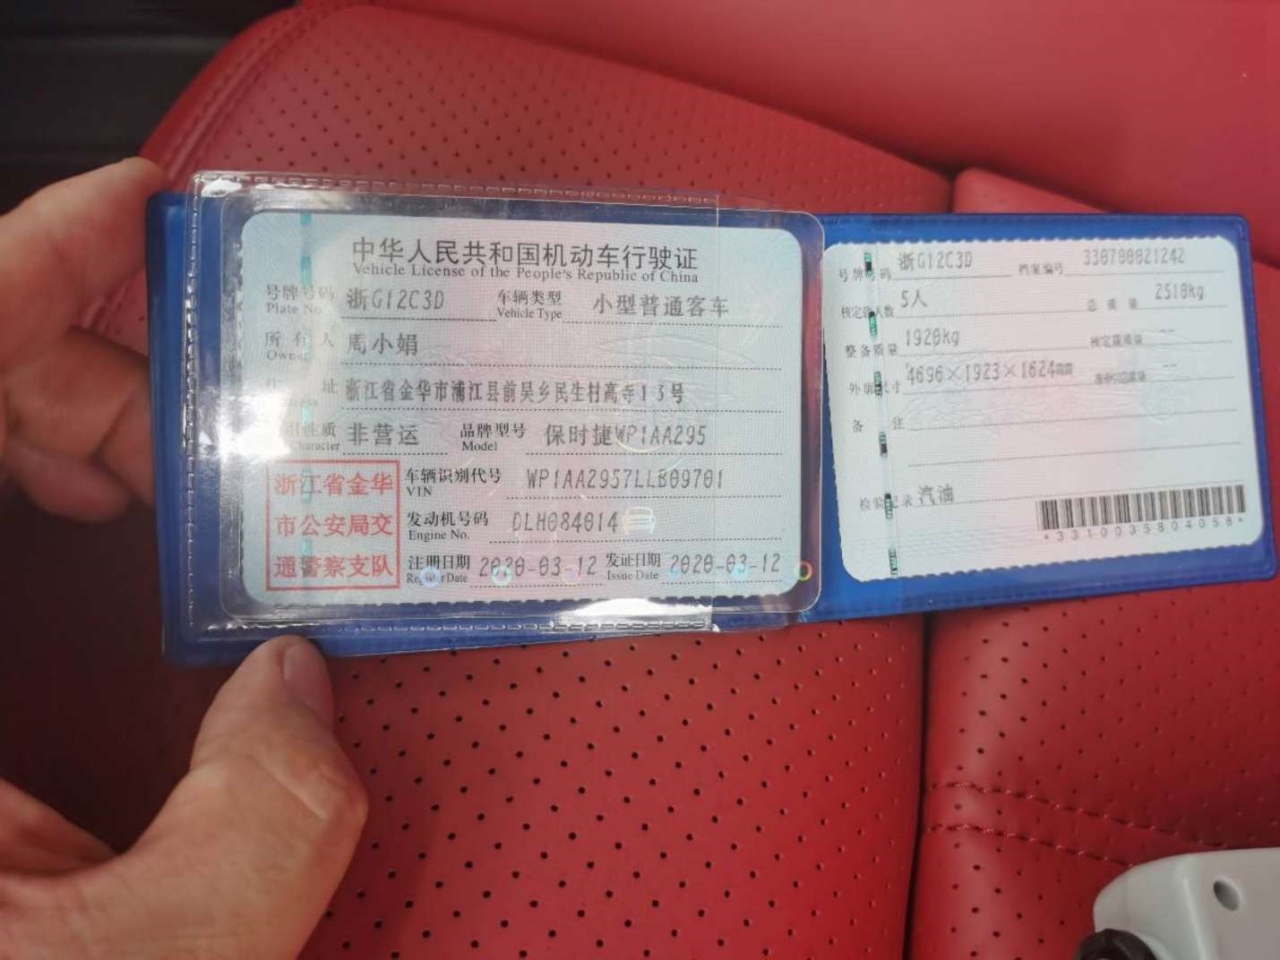 中华人民共和国机动车行驶证
Vehicle License of the People's Republic of China
号牌号码 浙G12C3D 车辆类型 小型普通客车
Plate No. Vehicle Type
所有人 周小娟
Owner
住址 浙江省金华市浦江县前吴乡民生村高寺13号
使用性质 非营运 品牌型号 保时捷WP1AA295
Character Model
浙江省金华
市公安局交
通警察支队
车辆识别代号 WP1AA2957LLB09701
VIN
发动机号码 DLH084014
Engine No.
注册日期 2020-03-12 发证日期 2020-03-12
Register Date Issue Date
号牌号码 浙G12C3D 档案编号 330700821242
核定载人数 5人 总质量 2510kg
整备质量 1920kg 核定载质量 --
外廓尺寸 4696×1923×1624mm 准牵引总质量 --
备注
检验记录 汽油
*3310035804058*